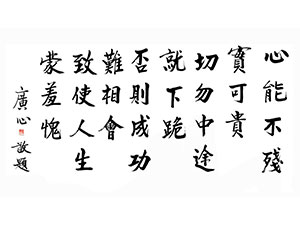 心能不殘
寶可貴
切勿中途
就下跪
否則成功
難相會
致使人生
蒙羞愧
廣心敬題